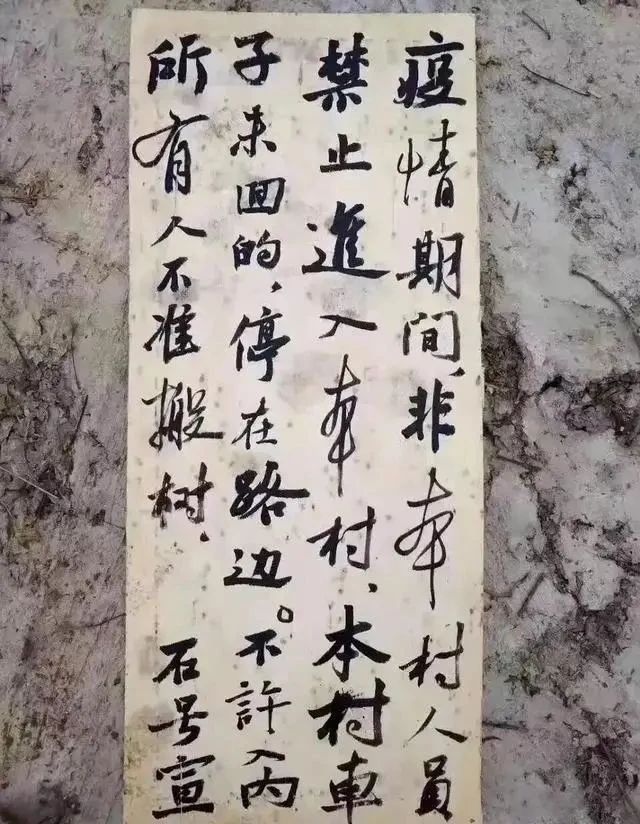 疫情期间、非本村人員
禁止進入本村、本村車
子未回的、停在路边。不許入内
所有人不准搬树、 石号宣